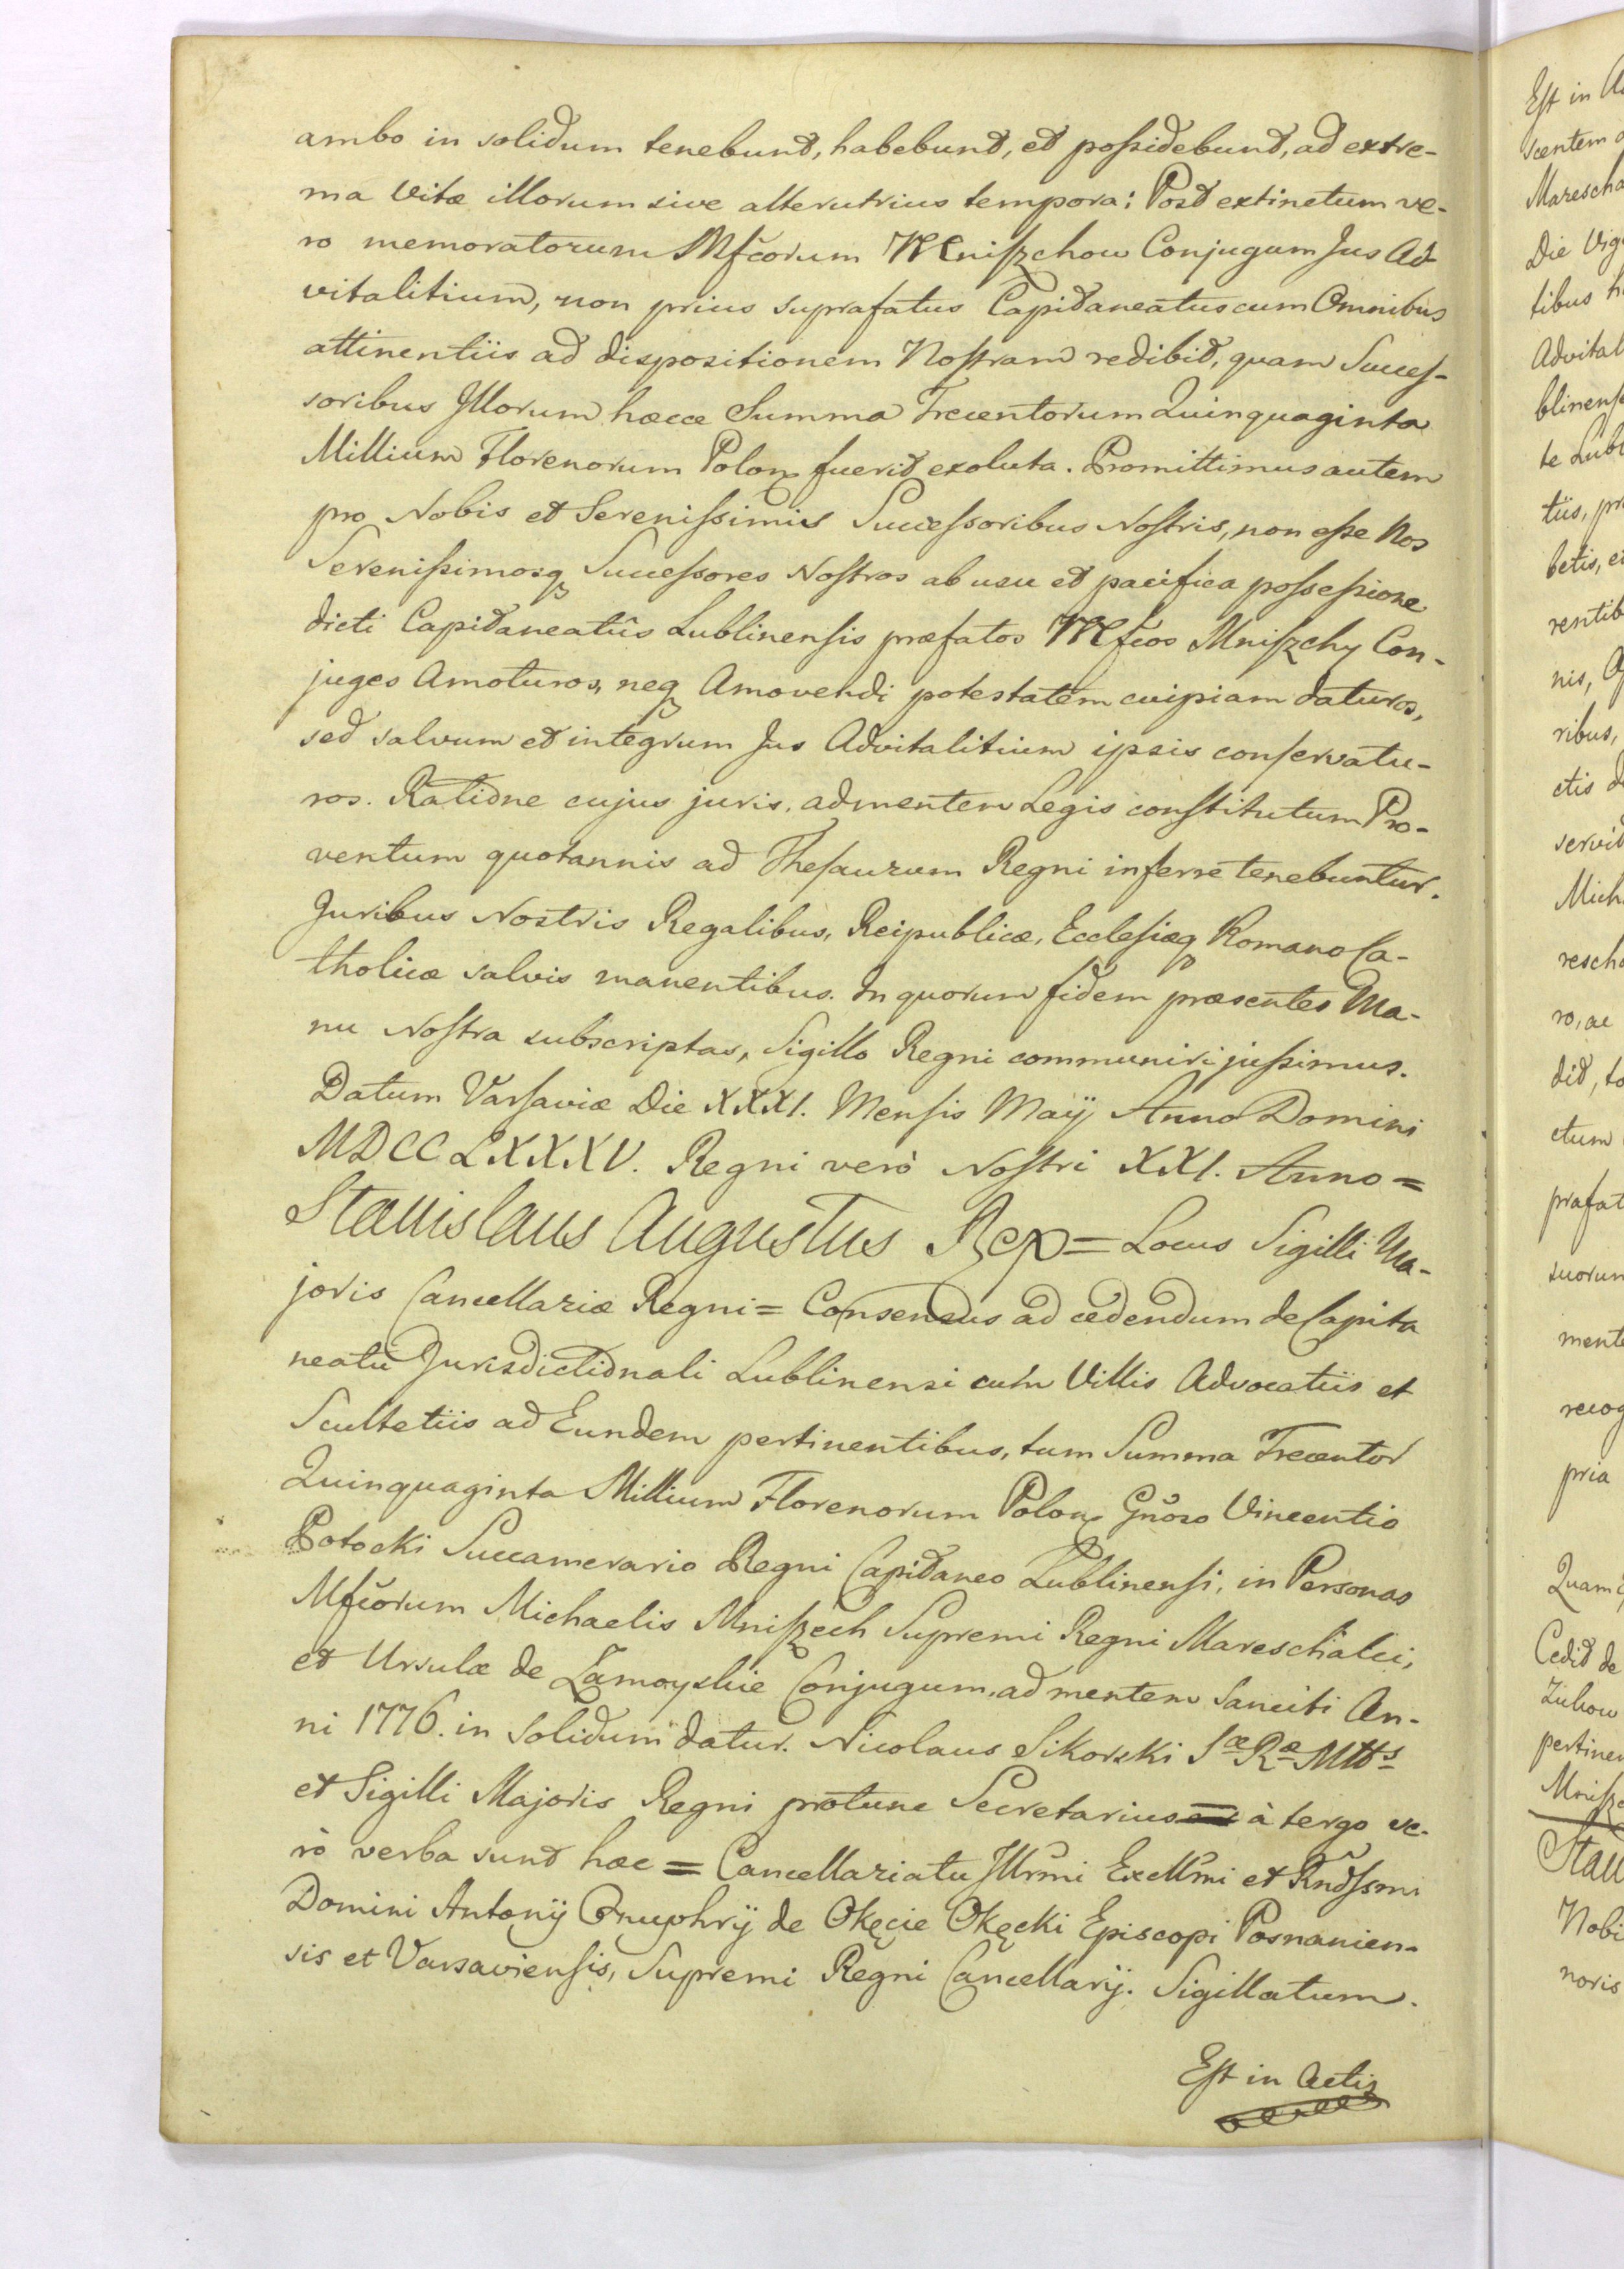 ambo in solidum tenebund, habebund, ed possidebund, ad extre-
ma Vitæ illorum sive alterutrius tempora: Post extinctum ve-
ro memoratorum Mfcorum Mniszchow Conjugum Jus Ad
vitalitium, non prius suprafatus Capitaneatus cum Omnibus
attinentiis ad dispositionem Nostram redibit, quam Succes-
soribus Illorum hæcce Summa Trecentorum Quinquaginta
Millium Florenorum Polon fuerit exoluta. Promittimus autem
pro Nobis et Serenissimis Successoribus Nostris, non esse Nos
Serenissimosq Successores Nostros ab usu et pacifica possessione
dicti Capitaneatûs Lublinensis præfatos Mfcos Mniszchy Con-
juges Amoturos, neq Amovendi potestatem cuipiam daturos,
sed salvum et integrum Jus Advitalitium ipsis conservatu-
ros. Ratione cujus juris, ad mentem Legis constitutum Pro-
ventum quotannis ad Thesaurum Regni inferre tenebuntur.
Juribus Nostris Regalibus, Reipublicæ, Ecclesiæq Romano Ca-
tholicæ salvis manentibus. In quorum fidem præsentes Ma-
nu Nostra subscriptas, Sigillo Regni communiri jussimus.
Datum Varsaviæ Die XXXI. Mensis Maÿ Anno Domini
MDCCLXXXV. Regni verò Nostri XXI. Anno =
Stanislaus Augustus Rex = Locus Sigilli Ma-
joris Cancellariæ Regni = Consensus ad cedendum de Capita
neatu Jurisdictionali Lublinensi cum Villis Advocatiis et
Scultetiis ad Eundem pertinentibus, tum Summa Trecentor
Quinquaginta Millium Florenorum Polon Gnoso Vincentio
Potocki Succamerario Regni Capitaneo Lublinensi, in Personas
Mfcorum Michaelis Mniszech Supremi Regni Mareschalci,
et Ursulæ de Zamoyskie Conjugum, ad mentem Sanciti An-
ni 1776. in Solidum datur. Nicolaus Sikorski Sæ Ræ Mttis
et Sigilli Majoris Regni protunc Secretarius à tergo ve-
rò verba sunt hæc = Cancellariatu Illrmi Excllmi et Rndssmi
Domini Antonÿ Onuphrÿ de Okęcie Okęcki Episcopi Posnanien-
sis et Varsaviensis, Supremi Regni Cancellarÿ. Sigillatum.
Est in Actis
Est in
scentem
Marescha
Die
tibus
Advital
blinens
te Lubl
tiis,
betis,
rentib
nis,
ribus,
ctis
servit
Mich
resch
ro, ac
dit,
ctum
præfat
suorum
ment
recog
pria
Quam
Cedit de
pertinen
Mnisz
Stan
Nobi
noris